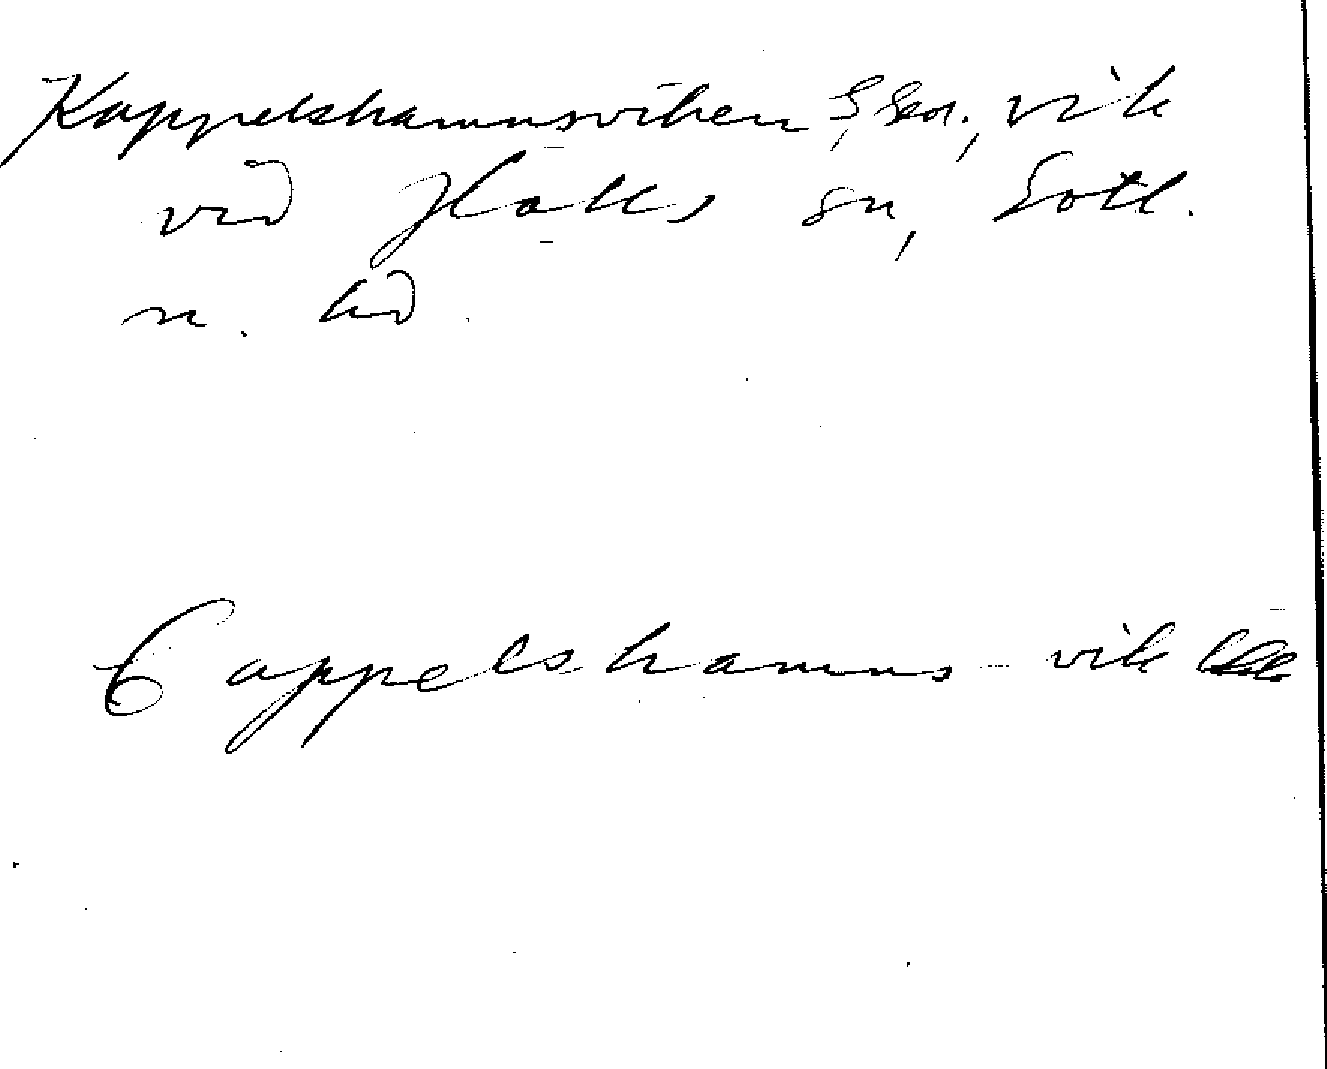 Kappelshamnsviken, vik
vid Halls sn, Gotl.
n. hd.
Cappelshamns-vik